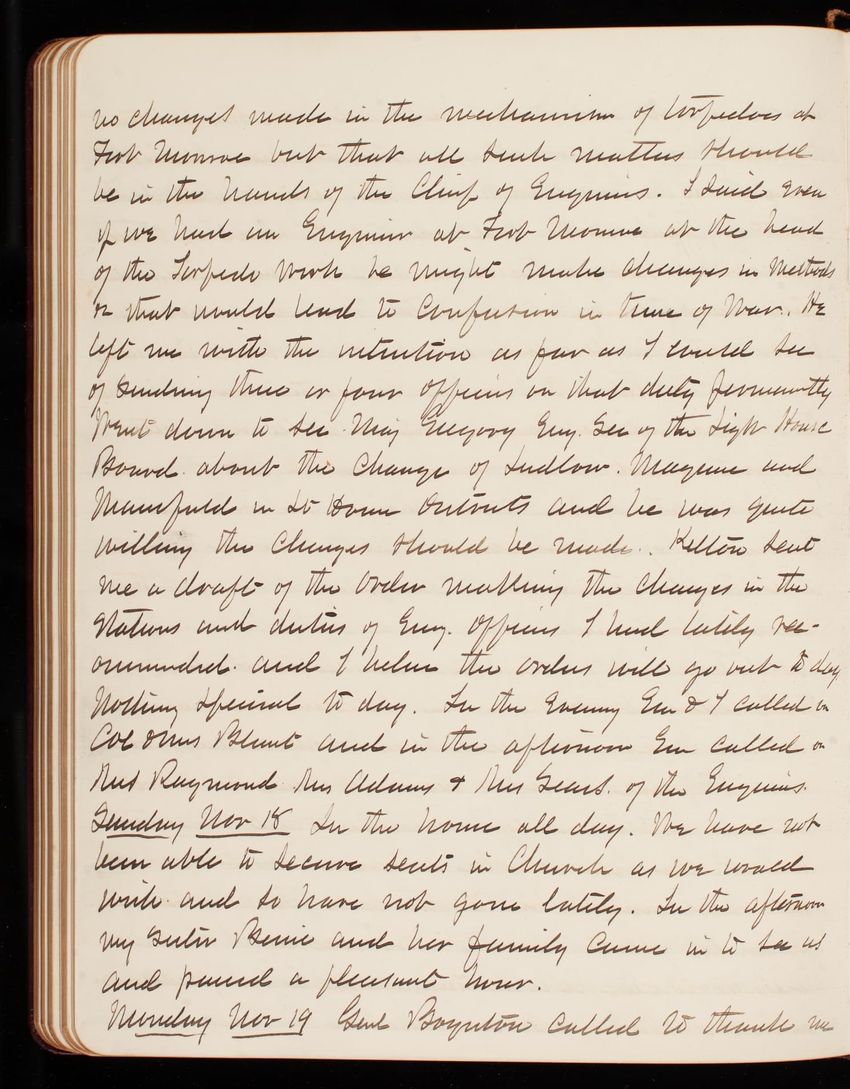 no changes made in the mechanism of torpedoes at
Fort Monroe but that all such matters should
be in the hands of the Chief of Engineers. I said even
if we had an Engineer at Fort Monroe at the head
of the Torpedo work he might make changes in Methods
or that would lead to Confusion in time of War. He
left me with the intention as far as I could see
of sending three or four officers on that duty permanently
Went down to see Maj Gregory Eng. Sec of the Light House
Board about the Change of Ludlow. Maguire and
Mansfield in Lt House districts and he was quite
willing the Changes should be made. Kelton sent
me a draft of the Order making the Changes in the
Stations and duties of Eng. Officers I had lately rec-
ommended and I believe the orders will go out to day
Nothing special to day. In the Evening Em & I called on
Col & Mrs Blunt and in the afternoon Em called on
Mrs Raymond Mrs Adams & Mrs Sears. of the Engineers.
Sunday Nov 18 In the house all day. We have not
been able to secure seats in Church as we would
wish and so have not gone lately. In the afternoon
my sister and her family came in to see us
and passed a pleasant hour.
Monday Nov 19 Genl Boynton called to thank me